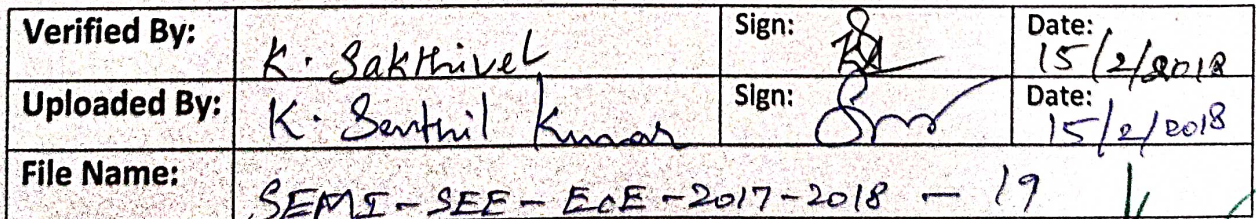 Verified By: K. Sakthivel Sign: Date: 15/2/2018
Uploaded By: K. Senthil Kumar Sign: Date: 15/2/2018
File Name: SEMI-SEE-ECE-2017-2018 - 19